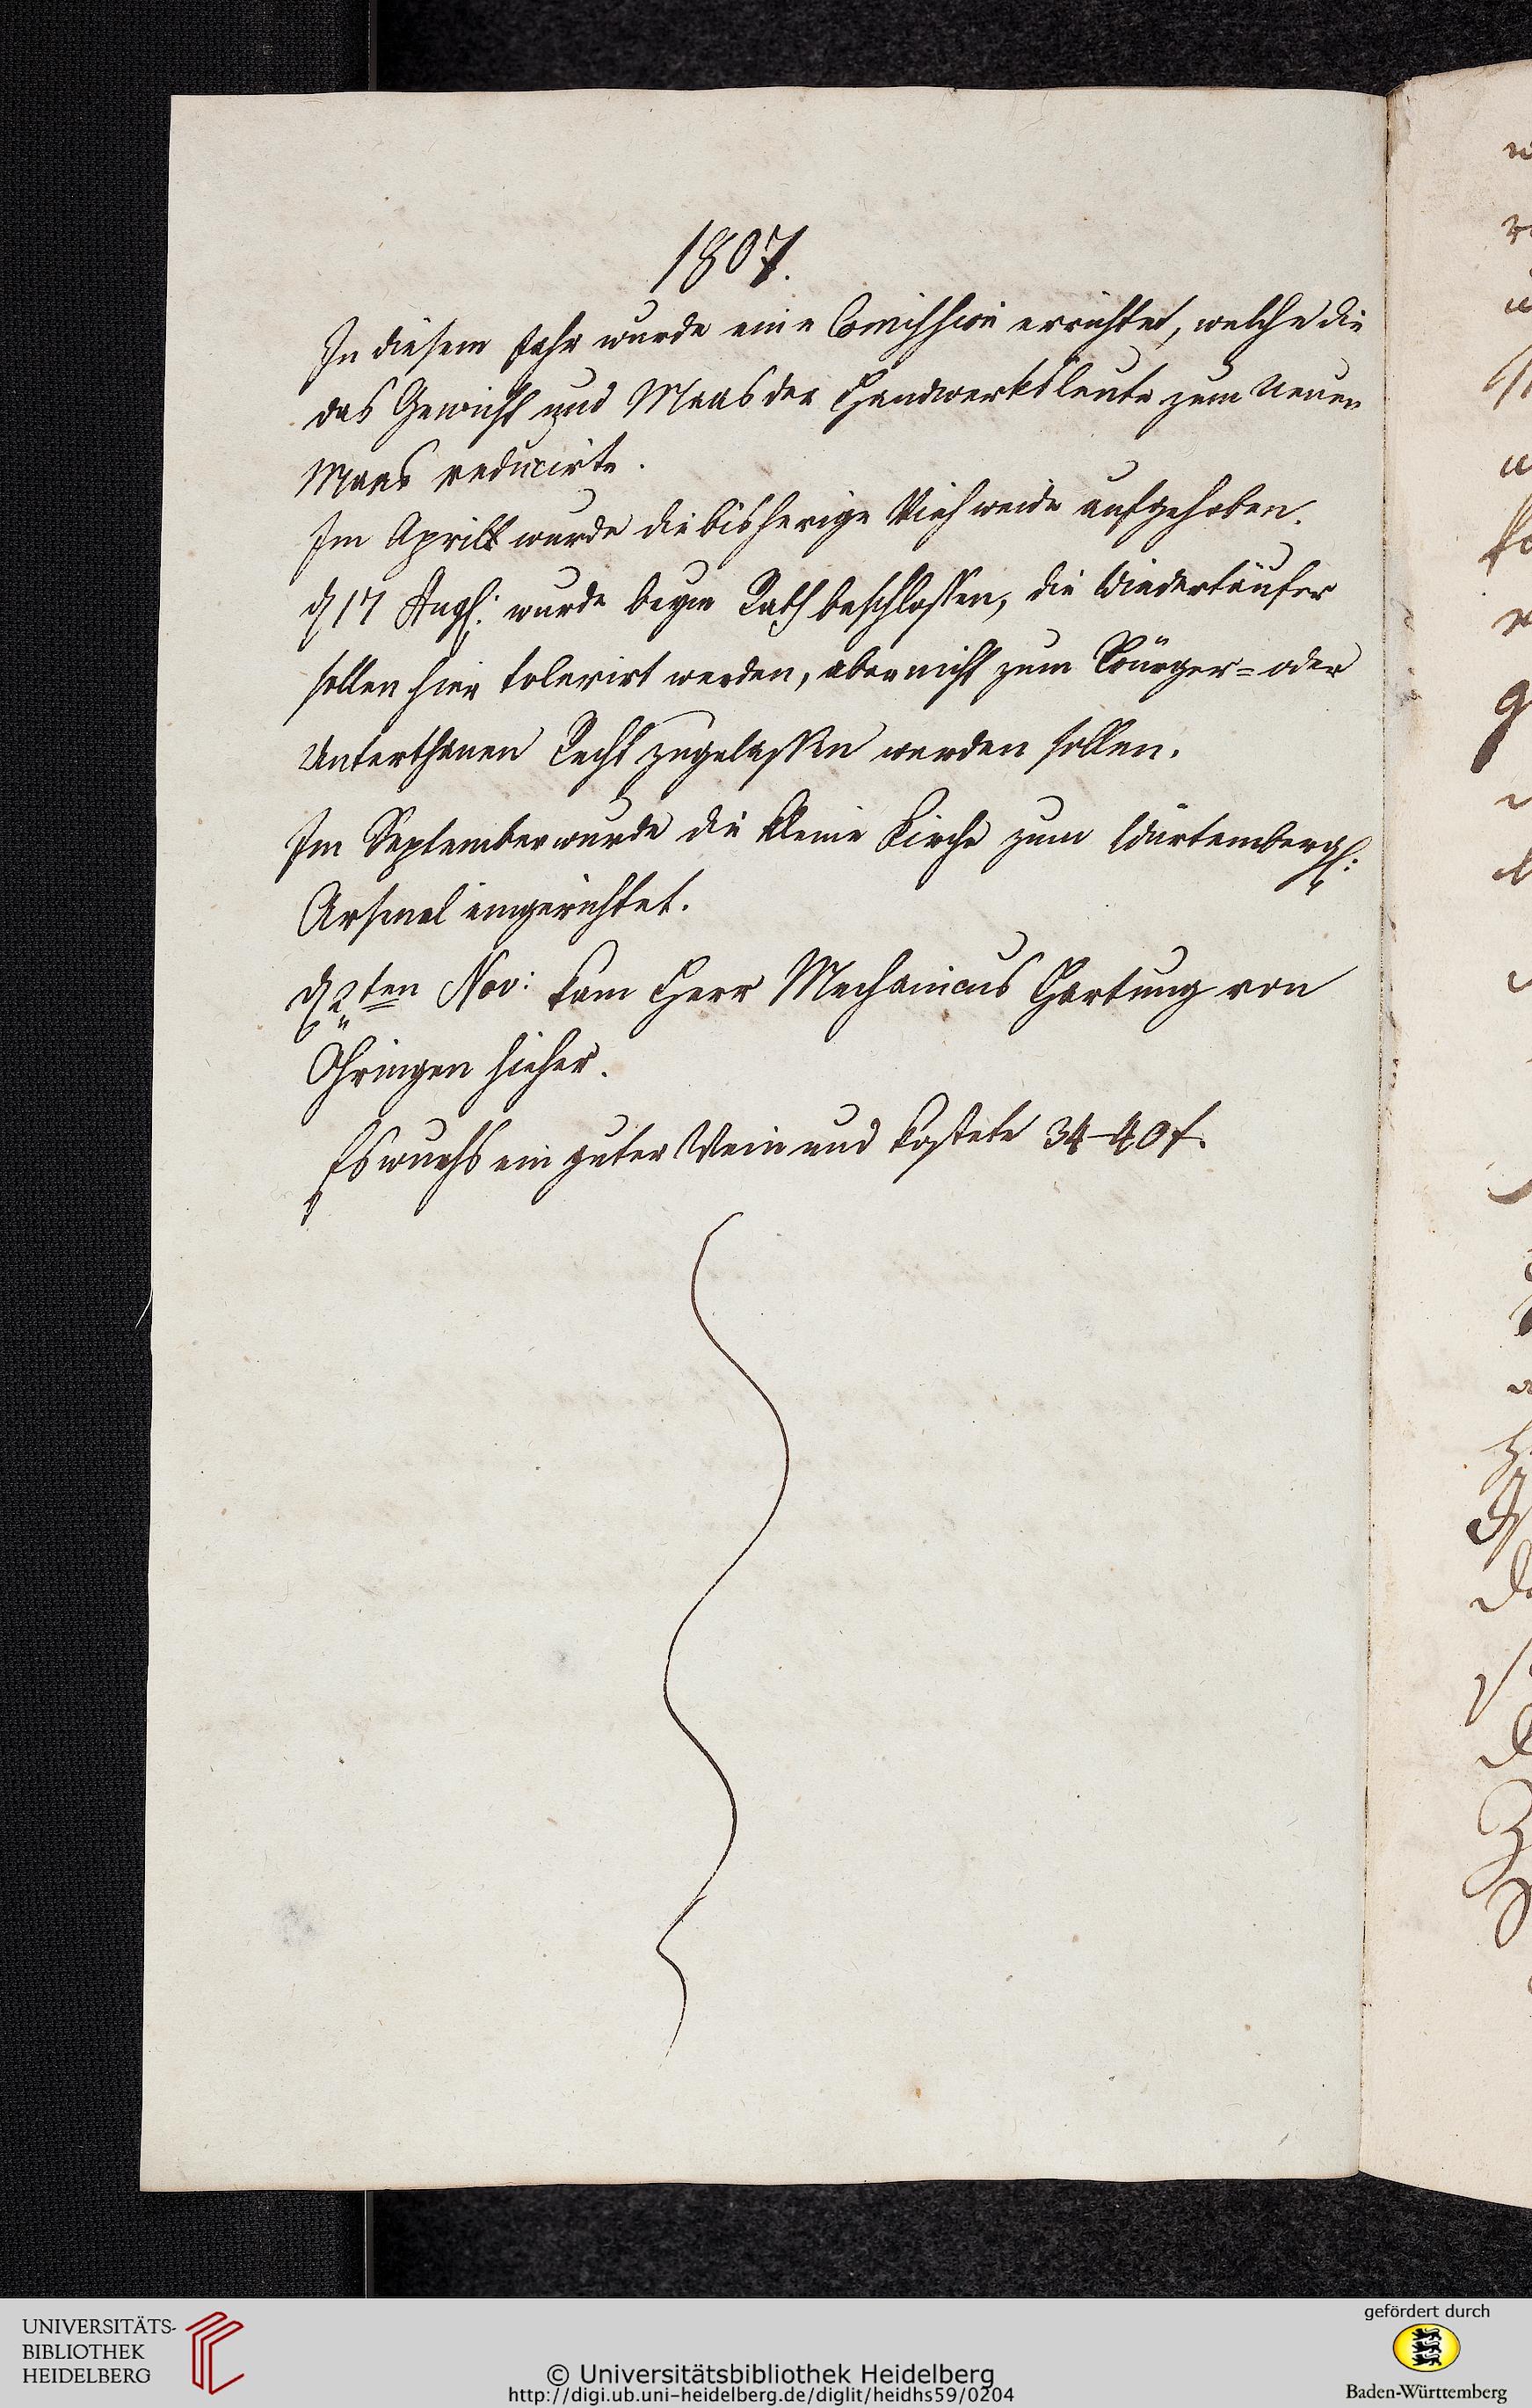 1807.
In diesem Jahr wurde eine Comission errichtet, welche die
das Gewicht und Maas der Handwerksleute zum Neuen
Maas reducirte.
Im April wurde die bisherige Viehweide aufgehoben.
d 17 Aug: wurde beym Rath beschlossen, die Wiedertäufer
sollen hier tolerirt werden, aber nicht zum Bürger= oder
Unterthanen Recht zugelassen werden sollen.
Im September wurde die kleine Kirche zum Würtembergs:
Arsenal eingerichtet.
d 2ten Nov: kam Herr Mechanicus Hartung von
Öhringen hieher.
Es wuchs ein guter Wein und kostete 34-40 f.
UNIVERSITÄTS-
BIBLIOTHEK
HEIDELBERG
© Universitätsbibliothek Heidelberg
http://digi.ub.uni-heidelberg.de/diglit/heidhs59/0204
gefördert durch
Baden-Württemberg